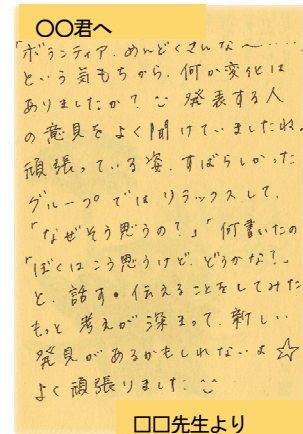 〇〇君へ
「ボランティア、めんどくさいな〜‥‥
という気もちから、何か変化は
ありましたか? 発表する人
の意見をよく聞けていましたね。
頑張っている姿、すばらしかった
グループではリラックスして、
「なぜそう思うの?」「何書いたの
「ぼくはこう思うけど、どうかな?」
と、話す・伝えることをしてみた
もっと考えが深まって、新しい
発見があるかもしれないよ☆
よく頑張りました
□□先生より